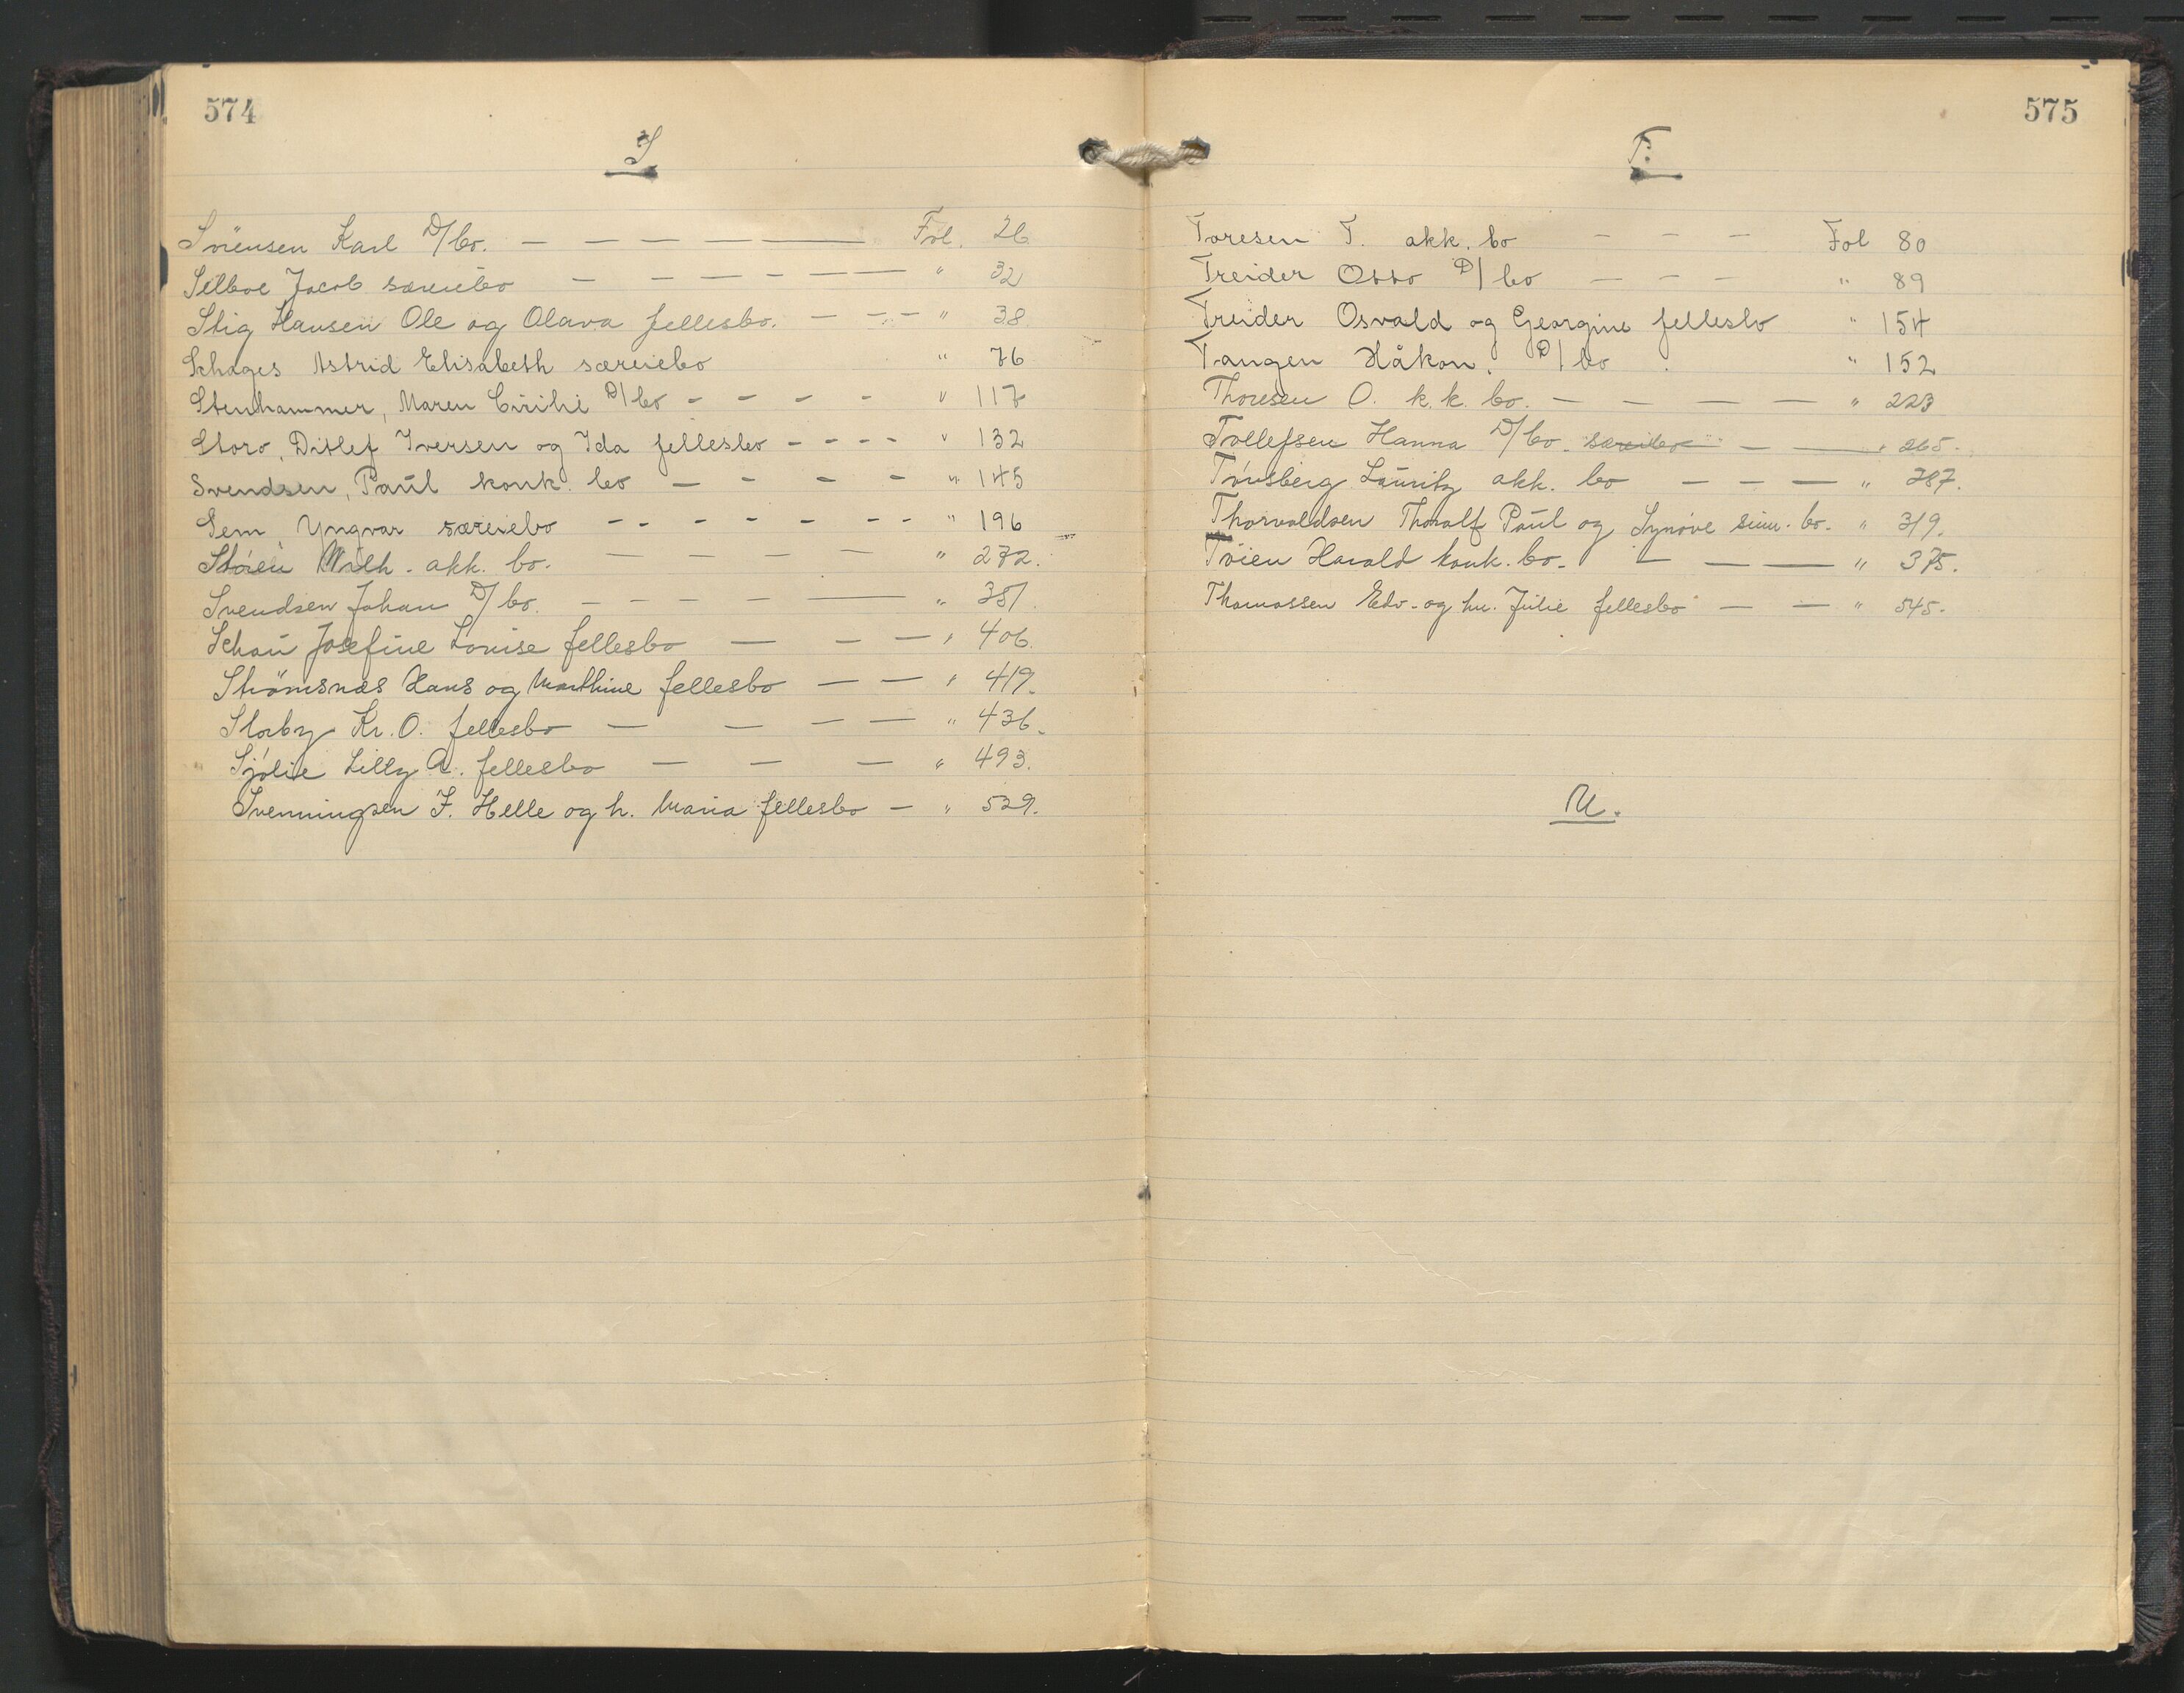 574
S
Sörensen Karl D/bo. — — — — — — Fol. 26
Selboe Jacob særeiebo — — — — — — " 32
Stig Hansen Ole og Olava fellesbo. — — — " 38
Schages Astrid Elisabeth særeiebo " 76
Stenhammer, Maren D/bo - - - - " 117
Storo, Ditlef Iversen og Ida fellesbo - - - - " 132
Svendsen, Paul konk. bo — - - - " 145
Sem, Yngvar særeiebo - - - - - - - " 196
Stören Wilh. akk. bo. — — — — " 272.
Svendsen Johan D/bo. — — — — — " 381.
Schau Josefine Lovise fellesbo — — — " 406.
Strömsnæs Hans og Marthine fellesbo — — " 419.
Storby Kr. O. fellesbo — — — — " 436.
Sjölie Lilly A. fellesbo — — — " 493.
Svenningsen F. Helle og h. Maria fellesbo — " 529.
575
T.
Toresen T. akk. bo — — — Fol 80
Treider Otto D/bo — — — " 89
Treider Osvald og Georgine fellesbo " 154
Tangen Håkon. D/bo . " 152
Thoresen O. k.k. bo. — — — — " 223
Tollefsen Hanna D/bo. særeiebo — — " 265.
Tönsberg Lauritz akk. bo — — — " 287.
Thorvaldsen Thoralf Paul og Synöve bo. " 319.
Töien Harald konk. bo. — — — " 375.
Thomassen Edv. og hu. Julie fellesbo — — " 545.
U.